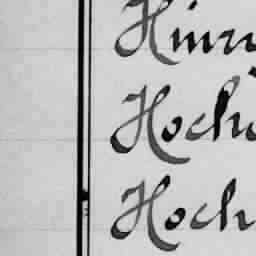 Hinry
Hoch
Hoch